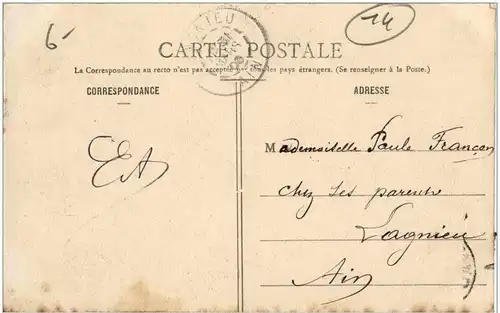 6-
14
CARTE POSTALE
La Correspondance au recto n'est pas acceptée par tous les pays étrangers. (Se renseigner à la Poste.)
CORRESPONDANCE
ADRESSE
Mademoiselle Paule Françon
chez ses parents
Lagnieu
Ain